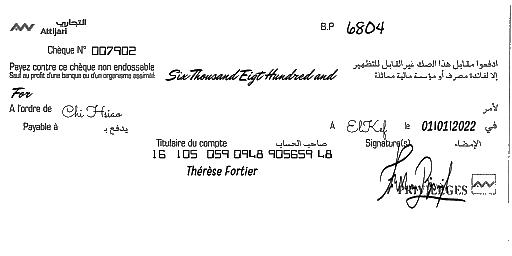 التجاري
Attijari
B.P 6804
Chèque N° 007902
Payez contre ce chèque non endossable
Sauf au profit d'une banque ou d'un organisme assimilé
Six Thousand Eigt Hundred and
ادفعوا مقابل هذا الصك غير القابل للتظهير
إلا لفائدة مصرف أو مؤسسة مالية مماثلة
For
A l'ordre de Chi Hsiao
لأمر
Payable à
يدفع بـ
A El Kef le 01/01/2022 في
Titulaire du compte صاحب الحساب
Signature(s) الإمضاء
16 105 059 0948 905659 48
Thérèse Fortier
PRIVILEGES